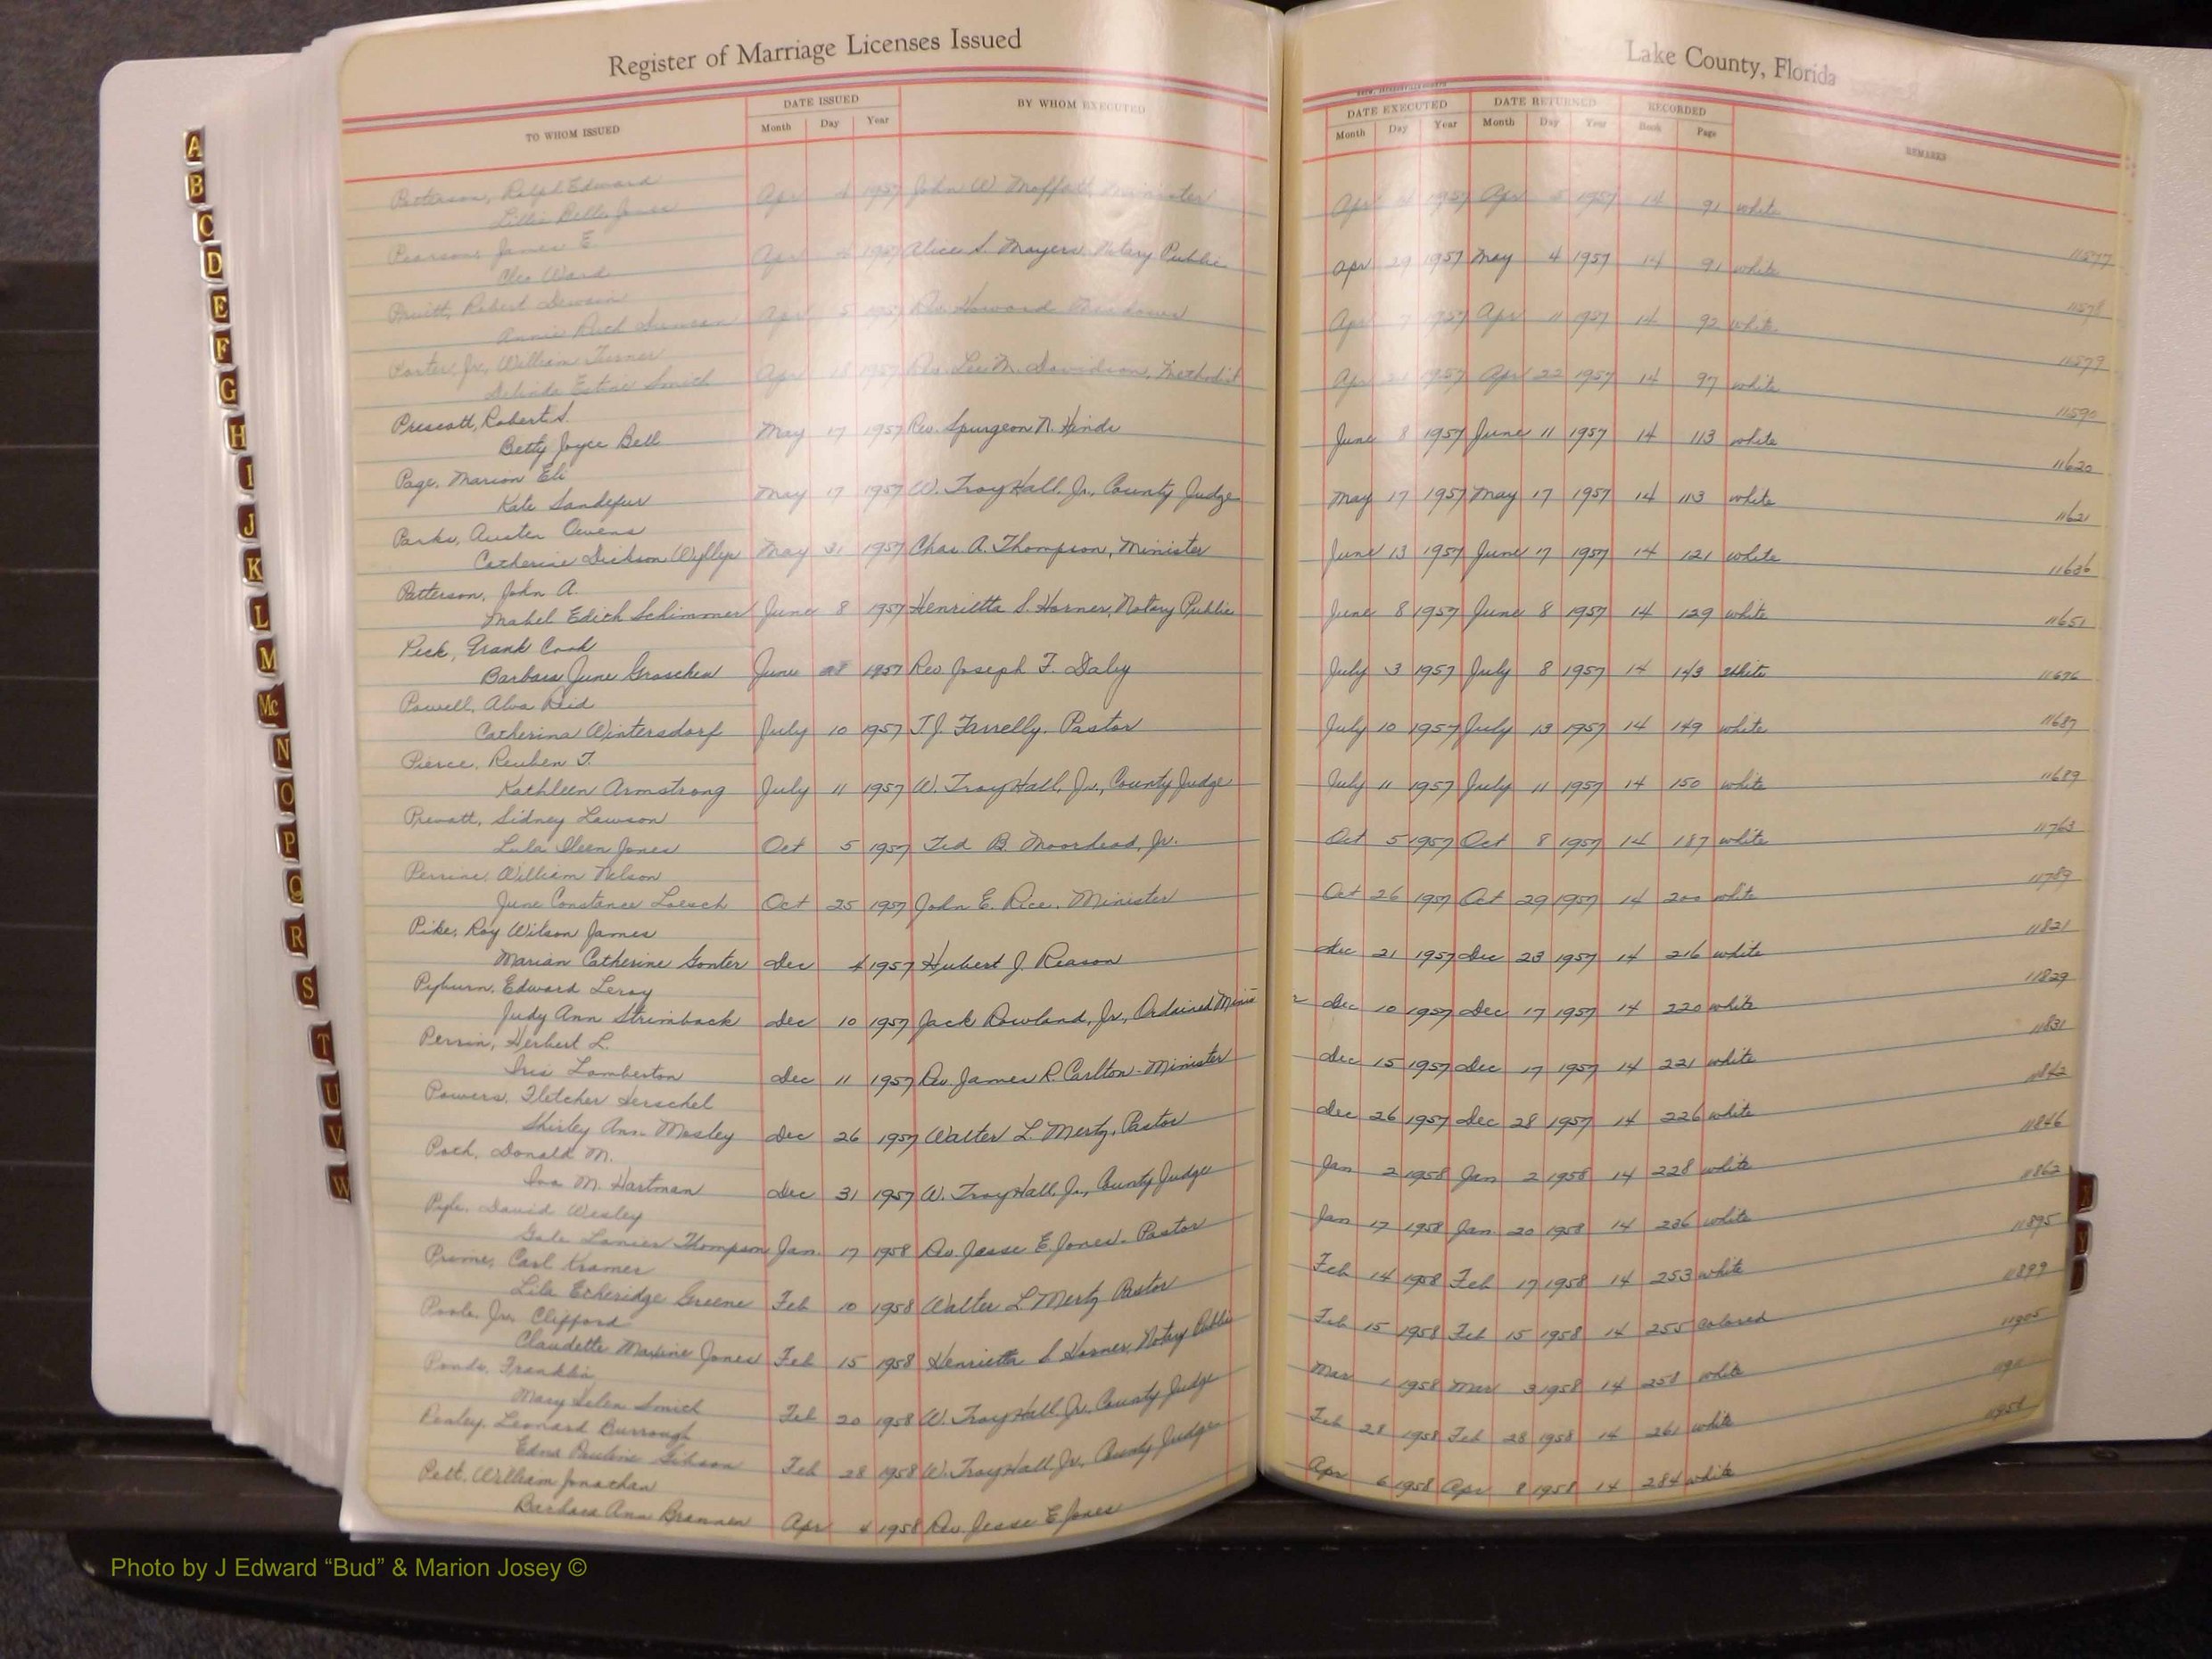 Register of Marriage Licenses Issued
Lake County, Florida
TO WHOM ISSUED
DATE ISSUED
Month Day Year
BY WHOM EXECUTED
DATE EXECUTED
Month Day Year
DATE RETURNED
Month Day Year
RECORDED
Book Page
REMARKS
Patterson, Ralph Edward
Lillie Belle Jones Apr 4 1957 John W. Moffatt, Minister Apr 1957 Apr 5 1957 14 91 white
Pearson, James E.
Cleo Ward Apr 1957 Alice S. Mayers, Notary Public Apr 29 1957 May 4 1957 14 91 white 11577
Pruitt, Robert
Annie Ruth Duncan Apr 5 1957 Rev. Howard Apr 7 1957 Apr 11 1957 14 92 white 11578
Porter, Jr., William Turner
Estine Smith Apr 18 1957 Rev. Lee M. Davidson, Methodist Apr 21 1957 Apr 22 1957 14 97 white 11579
11590
Prescott, Robert S.
Betty Joyce Bell May 17 1957 Rev. Spurgeon N. Hinds June 8 1957 June 11 1957 14 113 white 11620
Page, Marion Eli
Kate Sandefur May 17 1957 W. Troy Hall, Jr., County Judge May 17 1957 May 17 1957 14 113 white 11621
Parks, Austin Owens
Catherine Dickson Wyllys May 31 1957 Chas. A. Thompson, Minister June 13 1957 June 17 1957 14 121 white 11636
Patterson, John A.
Mabel Edith Schimmer June 8 1957 Henrietta S. Horner, Notary Public June 8 1957 June 8 1957 14 129 white 11651
Peck, Frank Cook
Barbara June Groschen June 28 1957 Rev Joseph F. Daly July 3 1957 July 8 1957 14 143 white 11676
Powell, Alva Reid
Catherina Wintersdorf July 10 1957 T. J. Farrelly, Pastor July 10 1957 July 13 1957 14 149 white 11687
Pierce, Reuben T.
Kathleen Armstrong July 11 1957 W. Troy Hall, Jr., County Judge July 11 1957 July 11 1957 14 150 white 11689
Prevatt, Sidney Lawson
Lula Ileen Jones Oct 5 1957 Ted B. Moorhead, Jr. Oct 5 1957 Oct 8 1957 14 187 white 11763
Perrine, William Nelson
June Constance Loesch Oct 25 1957 John E. Rice, Minister Oct 26 1957 Oct 29 1957 14 200 white 11789
Pike, Roy Wilson James
Marian Catherine Gonter Dec 4 1957 Hubert J. Reason Dec 21 1957 Dec 23 1957 14 216 white 11821
Pyburn, Edward Leroy
Judy Ann Strimback Dec 10 1957 Jack Rowland, Jr., Ordained Minis r Dec 10 1957 Dec 17 1957 14 220 white 11829
Perrin, Herbert L.
Iris Lamberton Dec 11 1957 Rev. James R. Carlton - Minister Dec 15 1957 Dec 17 1957 14 221 white 11831
Powers, Fletcher Herschel
Shirley Ann Mosley Dec 26 1957 Walter L. Mertz, Pastor Dec 26 1957 Dec 28 1957 14 226 white 11842
Poth, Donald M.
Iva M. Hartman Dec 31 1957 W. Troy Hall, Jr., County Judge Jan 2 1958 Jan 2 1958 14 228 white 11846
Pyle, David Wesley
Gale Lanier Thompson Jan. 17 1958 Rev. Jesse E. Jones - Pastor Jan 17 1958 Jan. 20 1958 14 236 white 11862
Prime, Carl Kramer
Lila Etheridge Greene Feb 10 1958 Walter L. Mertz Pastor Feb 14 1958 Feb 17 1958 14 253 white 11895
Poole, Jr., Clifford
Claudette Maxine Jones Feb 15 1958 Henrietta S Horner, Notary Public Feb 15 1958 Feb 15 1958 14 255 colored 11899
Ponds, Franklin
Mary Helen Smith Feb 20 1958 W. Troy Hall Jr. County Judge Mar 1 1958 Mar 3 1958 14 258 white 11905
Leonard Burrough
Edna Pauline Gibson Feb 28 1958 W. Troy Hall, Jr., County Judge Feb 28 1958 Feb 28 1958 14 261 white
Pelt, William Jonathan
Barbara Ann Brannen Apr 4 1958 Rev. Jesse E Jones Apr 6 1958 Apr 8 1958 14 284 white
A
B
C
D
E
F
G
H
I
J
K
L
M
Mc
N
O
P
Q
R
S
T
U
V
W
X
Y
Photo by J Edward “Bud” & Marion Josey ©